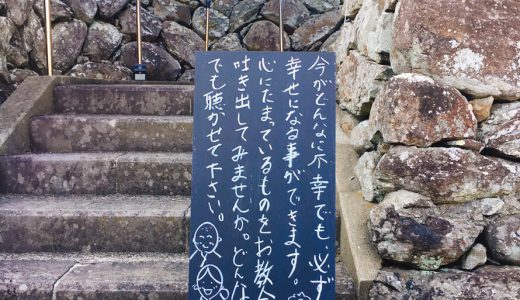 今がどんなに不幸でも必ず
幸せになる事ができます。
心にたまっているものをお教会
吐き出してみませんか。どんな
でも聴かせて下さい。